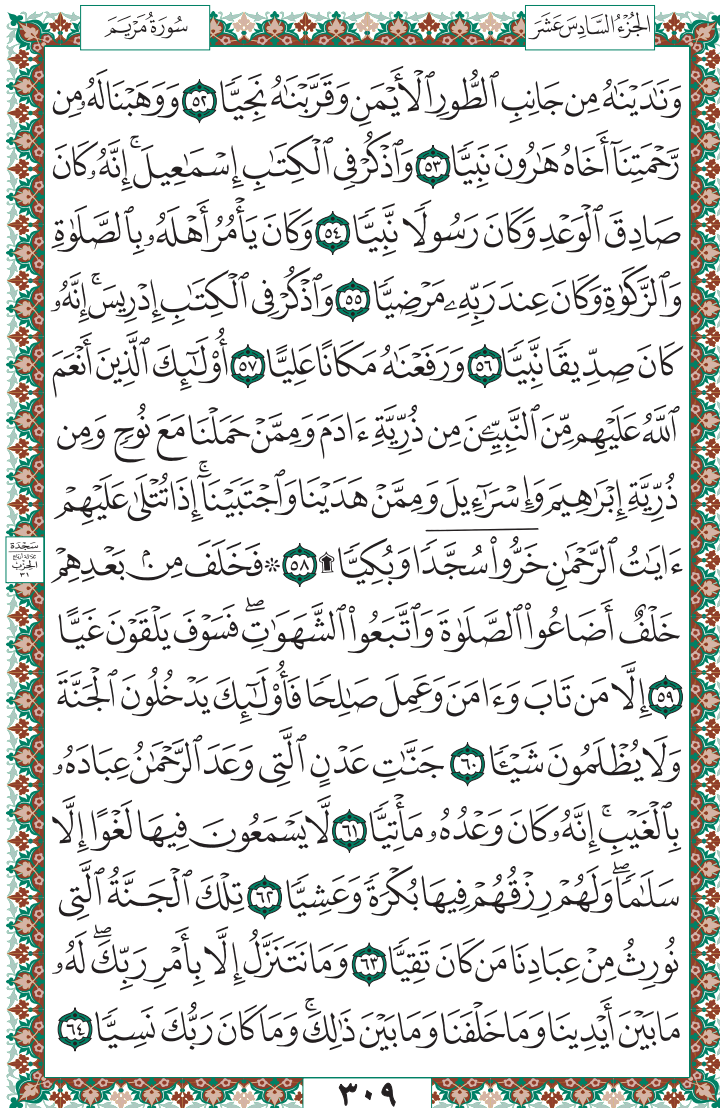 الجُزْءُ السَّادِسَ عَشَر
سُورَةُ مَرْيَمَ
وَنَٰدَيْنَٰهُ مِن جَانِبِ ٱلطُّورِ ٱلْأَيْمَنِ وَقَرَّبْنَٰهُ نَجِيًّا ٥٢ وَوَهَبْنَا لَهُۥ مِن
رَّحْمَتِنَآ أَخَاهُ هَٰرُونَ نَبِيًّا ٥٣ وَٱذْكُرْ فِى ٱلْكِتَٰبِ إِسْمَٰعِيلَ ۚ إِنَّهُۥ كَانَ
صَادِقَ ٱلْوَعْدِ وَكَانَ رَسُولًا نَّبِيًّا ٥٤ وَكَانَ يَأْمُرُ أَهْلَهُۥ بِٱلصَّلَوٰةِ
وَٱلزَّكَوٰةِ وَكَانَ عِندَ رَبِّهِۦ مَرْضِيًّا ٥٥ وَٱذْكُرْ فِى ٱلْكِتَٰبِ إِدْرِيسَ ۚ إِنَّهُۥ
كَانَ صِدِّيقًا نَّبِيًّا ٥٦ وَرَفَعْنَٰهُ مَكَانًا عَلِيًّا ٥٧ أُو۟لَٰٓئِكَ ٱلَّذِينَ أَنْعَمَ
ٱللَّهُ عَلَيْهِم مِّنَ ٱلنَّبِيِّـۧنَ مِن ذُرِّيَّةِ ءَادَمَ وَمِمَّنْ حَمَلْنَا مَعَ نُوحٍ وَمِن
ذُرِّيَّةِ إِبْرَٰهِيمَ وَإِسْرَٰٓءِيلَ وَمِمَّنْ هَدَيْنَا وَٱجْتَبَيْنَآ ۚ إِذَا تُتْلَىٰ عَلَيْهِمْ
ءَايَٰتُ ٱلرَّحْمَٰنِ خَرُّوا۟ سُجَّدًا وَبُكِيًّا ۩ ٥٨ ۞ فَخَلَفَ مِنۢ بَعْدِهِمْ
سَجْدَة
ثلاثة أرباع
الحِزْب
٣١
خَلْفٌ أَضَاعُوا۟ ٱلصَّلَوٰةَ وَٱتَّبَعُوا۟ ٱلشَّهَوَٰتِ ۖ فَسَوْفَ يَلْقَوْنَ غَيًّا
٥٩ إِلَّا مَن تَابَ وَءَامَنَ وَعَمِلَ صَٰلِحًا فَأُو۟لَٰٓئِكَ يَدْخُلُونَ ٱلْجَنَّةَ
وَلَا يُظْلَمُونَ شَيْـًٔا ٦٠ جَنَّٰتِ عَدْنٍ ٱلَّتِى وَعَدَ ٱلرَّحْمَٰنُ عِبَادَهُۥ
بِٱلْغَيْبِ ۚ إِنَّهُۥ كَانَ وَعْدُهُۥ مَأْتِيًّا ٦١ لَّا يَسْمَعُونَ فِيهَا لَغْوًا إِلَّا
سَلَٰمًا ۖ وَلَهُمْ رِزْقُهُمْ فِيهَا بُكْرَةً وَعَشِيًّا ٦٢ تِلْكَ ٱلْجَنَّةُ ٱلَّتِى
نُورِثُ مِنْ عِبَادِنَا مَن كَانَ تَقِيًّا ٦٣ وَمَا نَتَنَزَّلُ إِلَّا بِأَمْرِ رَبِّكَ ۖ لَهُۥ
مَا بَيْنَ أَيْدِينَا وَمَا خَلْفَنَا وَمَا بَيْنَ ذَٰلِكَ ۚ وَمَا كَانَ رَبُّكَ نَسِيًّا ٦٤
٣٠٩